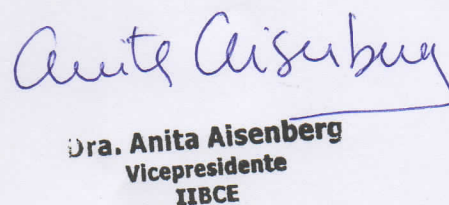 Anita Aisenberg
Dra. Anita Aisenberg
Vicepresidente
IIBCE